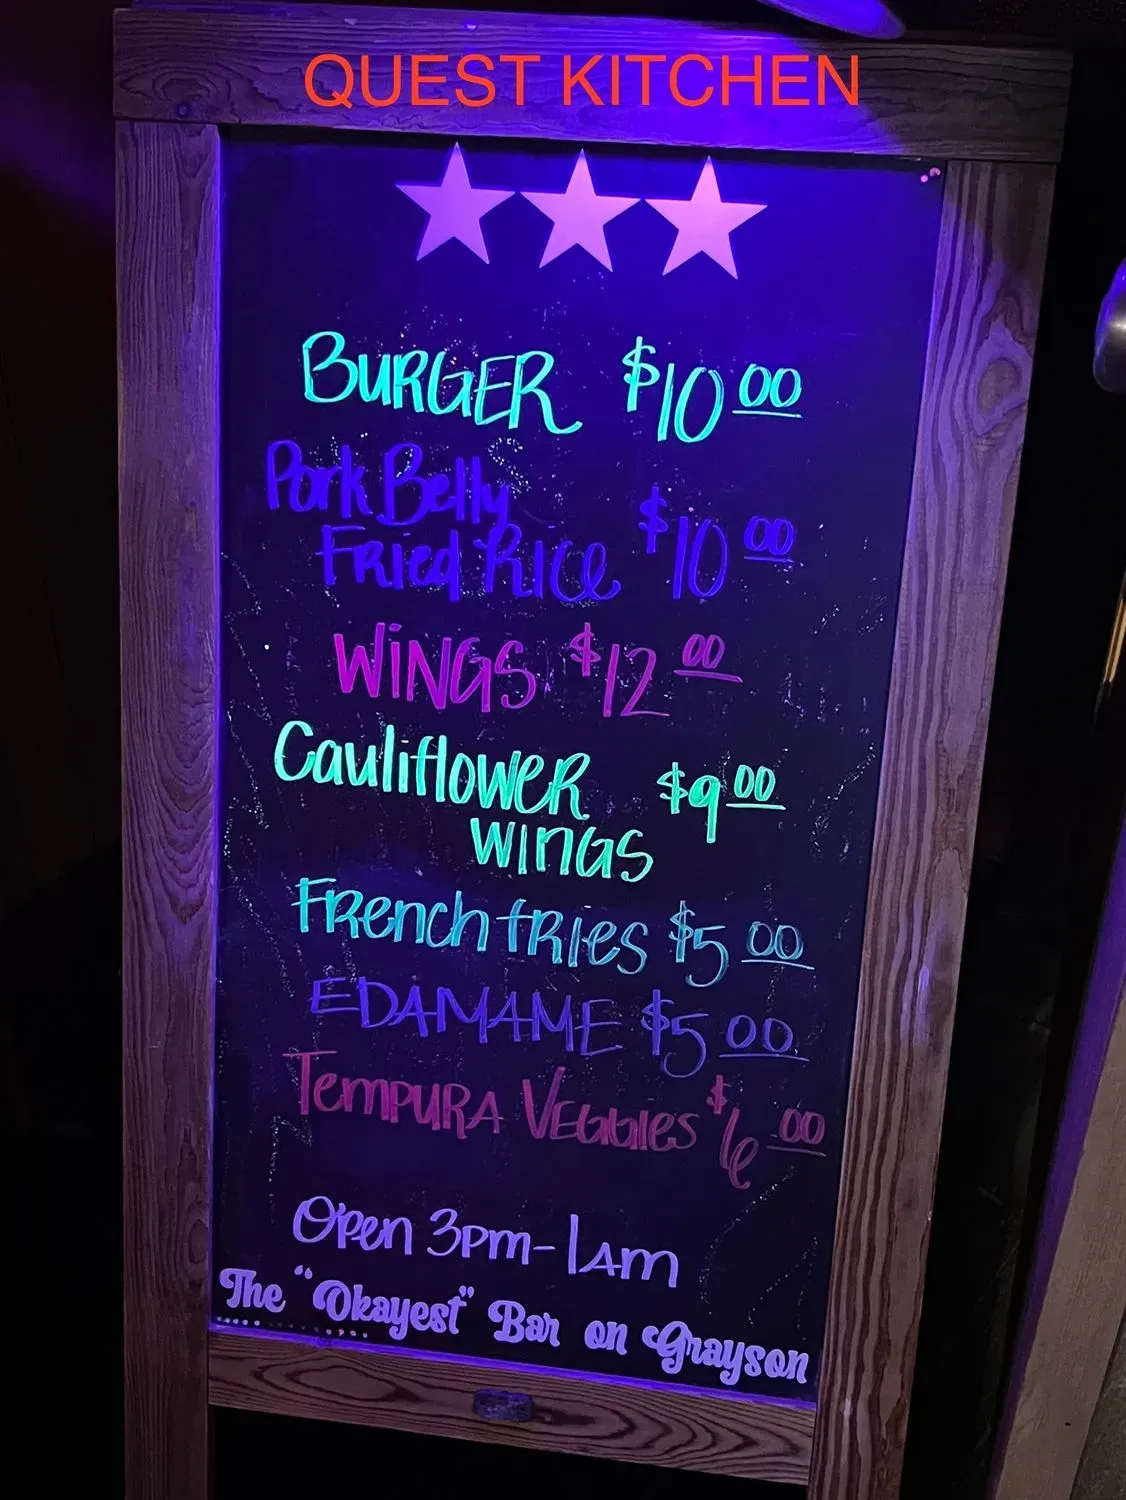 QUEST KITCHEN
BURGER $10 00
Pork Belly
FRied Rice $10 00
WiNGS $12 00
CaulifloweR $9 00
WINGS
FRench fRies $5 00
EDAMAME $5 00
TemPURA VeGGies $6 00
Open 3pm-1am
The "Okayest" Bar on Grayson